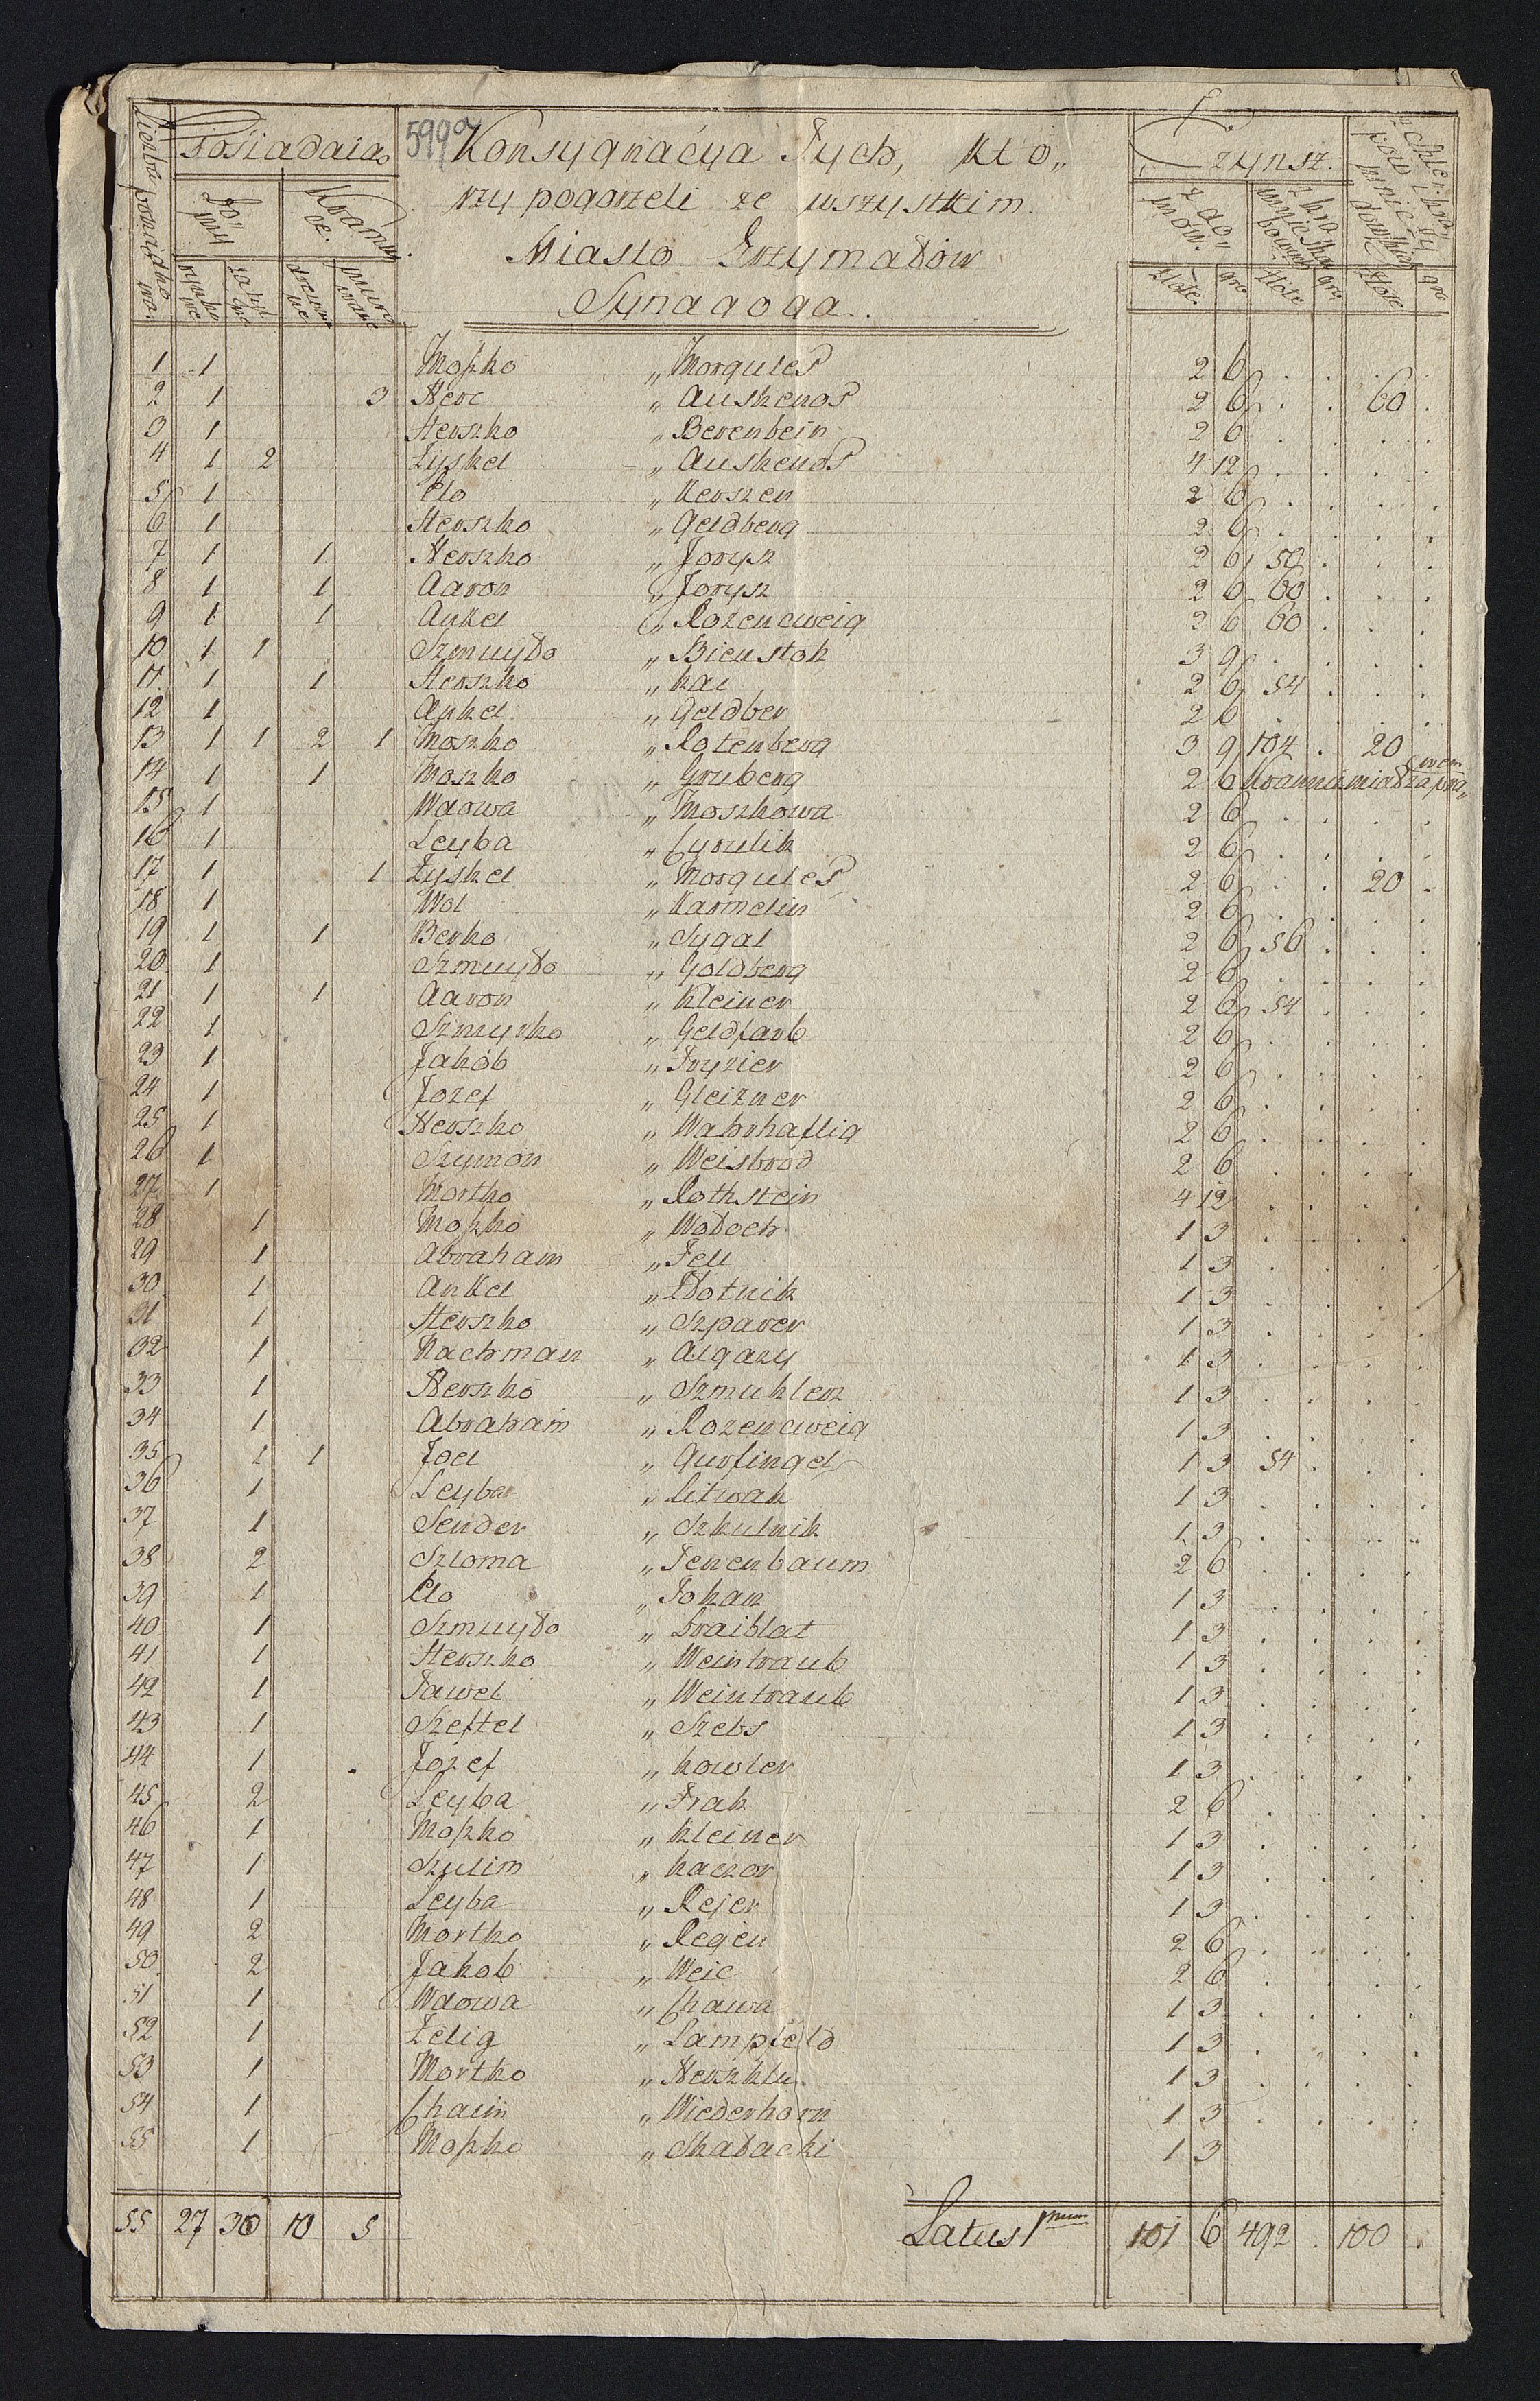 599a
Posiadaią
Konsygnacya Tych, Któ„
Czynsz.
rzy pogorzeli ze wszystkim.
Miasto Grzymałów
Synagoga.
Złote. gro Złote gro. Złote gro
1 1 Moszko „ Morgules 2 6 . . . .
2 1 3 Herc „ Auskenos 2 6 . . 60 .
3 1 Herszko „ Berenbein 2 6 . . . .
4 1 2 Zyskel „ Auskenos 4 12 . . . .
5 1 Elo „ Kerszen 2 6 . . . .
6 1 Herszko „ Geldberg 2 6 . . . .
7 1 1 Herszko „ Jorysz 2 6 50 . . .
8 1 1 Aaron „ Jorysz 2 6 60 . . .
9 1 1 Ankel „ Rozencweig 2 6 60 . . .
10 1 1 Szmuyło „ Bienstok 3 9 . . . .
11 1 1 Herszko „ Kac 2 6 54 . . .
12 1 Ankel „ Geldber 2 6 . . . .
13 1 1 2 1 Moszko „ Rotenberg 3 9 104 . 20 .
14 1 1 Moszko „ Gruberg 2 6
15 1 Wdowa „ Moszkowa 2 6 . . . .
16 1 Leyba „ Cyrulik 2 6 . . . .
17 1 1 Zyskel „ Morgules 2 6 . . 20 .
18 1 Wol „ Karmelin 2 6 . . . .
19 1 1 Berko „ Sygal 2 6 56 . . .
20 1 Szmuyło „ Goldberg 2 6 . . . .
21 1 1 Aaron „ Kleiner 2 6 54 . . .
22 1 Szmyrko „ Geldfarb 2 6 . . . .
23 1 Jakób „ Fryzier 2 6 . . . .
24 1 Jozef „ Gleizner 2 6 . . . .
25 1 Herszko „ Wahrhaftig 2 6 . . . .
26 1 Szymon „ Weisbrod 2 6 . . . .
27 1 Mortko „ Rothstein 4 12 . . . .
28 1 Moszko „ Wołoch 1 3 . . . .
29 1 Abraham „ Fell 1 3 . . . .
30 1 Ankel „ Złotnik 1 3 . . . .
31 1 Herszko „ Szparer 1 3 . . . .
32 1 Nachman „ Algazy 1 3 . . . .
33 1 Herszko „ Szmuklerz 1 3 . . . .
34 1 Abraham „ Rozencweig 1 3 . . . .
35 1 1 Joel „ Gurfingel 1 3 54 . . .
36 1 Leyba „ Litwak 1 3 . . . .
37 1 Sender „ Szkulnik 1 3 . . . .
38 2 Szloma „ Tenenbaum 2 6 . . . .
39 1 Elo „ Tokarz 1 3 . . . .
40 1 Szmuyło „ Braiblat 1 3 . . . .
41 1 Herszko „ Weintraub 1 3 . . . .
42 1 Fawel „ Weintraub 1 3 . . . .
43 1 Szeftel „ Szebs 1 3 . . . .
44 1 Jozef „ Kowler 1 3 . . . .
45 2 Leyba „ Frak 2 6 . . . .
46 1 Moszko „ Kleiner 1 3 . . . .
47 1 Szulim „ Kaczor 1 3 . . . .
48 1 Leyba „ Rejer 1 3 . . . .
49 2 Mortko „ Regen 2 6 . . . .
50 2 Jakob „ Weic 2 6 . . . .
51 1 Wdowa „ Chawa 1 3 . . . .
52 1 Zelig „ Lampfeld 1 3 . . . .
53 1 Mortko „ Herszklu. 1 3 . . . .
54 1 Chaim „ Wiederhorn 1 3 . . . .
55 1 Moszko „ Skałacki 1 3
55 27 30 10 5 Latus 1mum 101 6 492 . 100 .